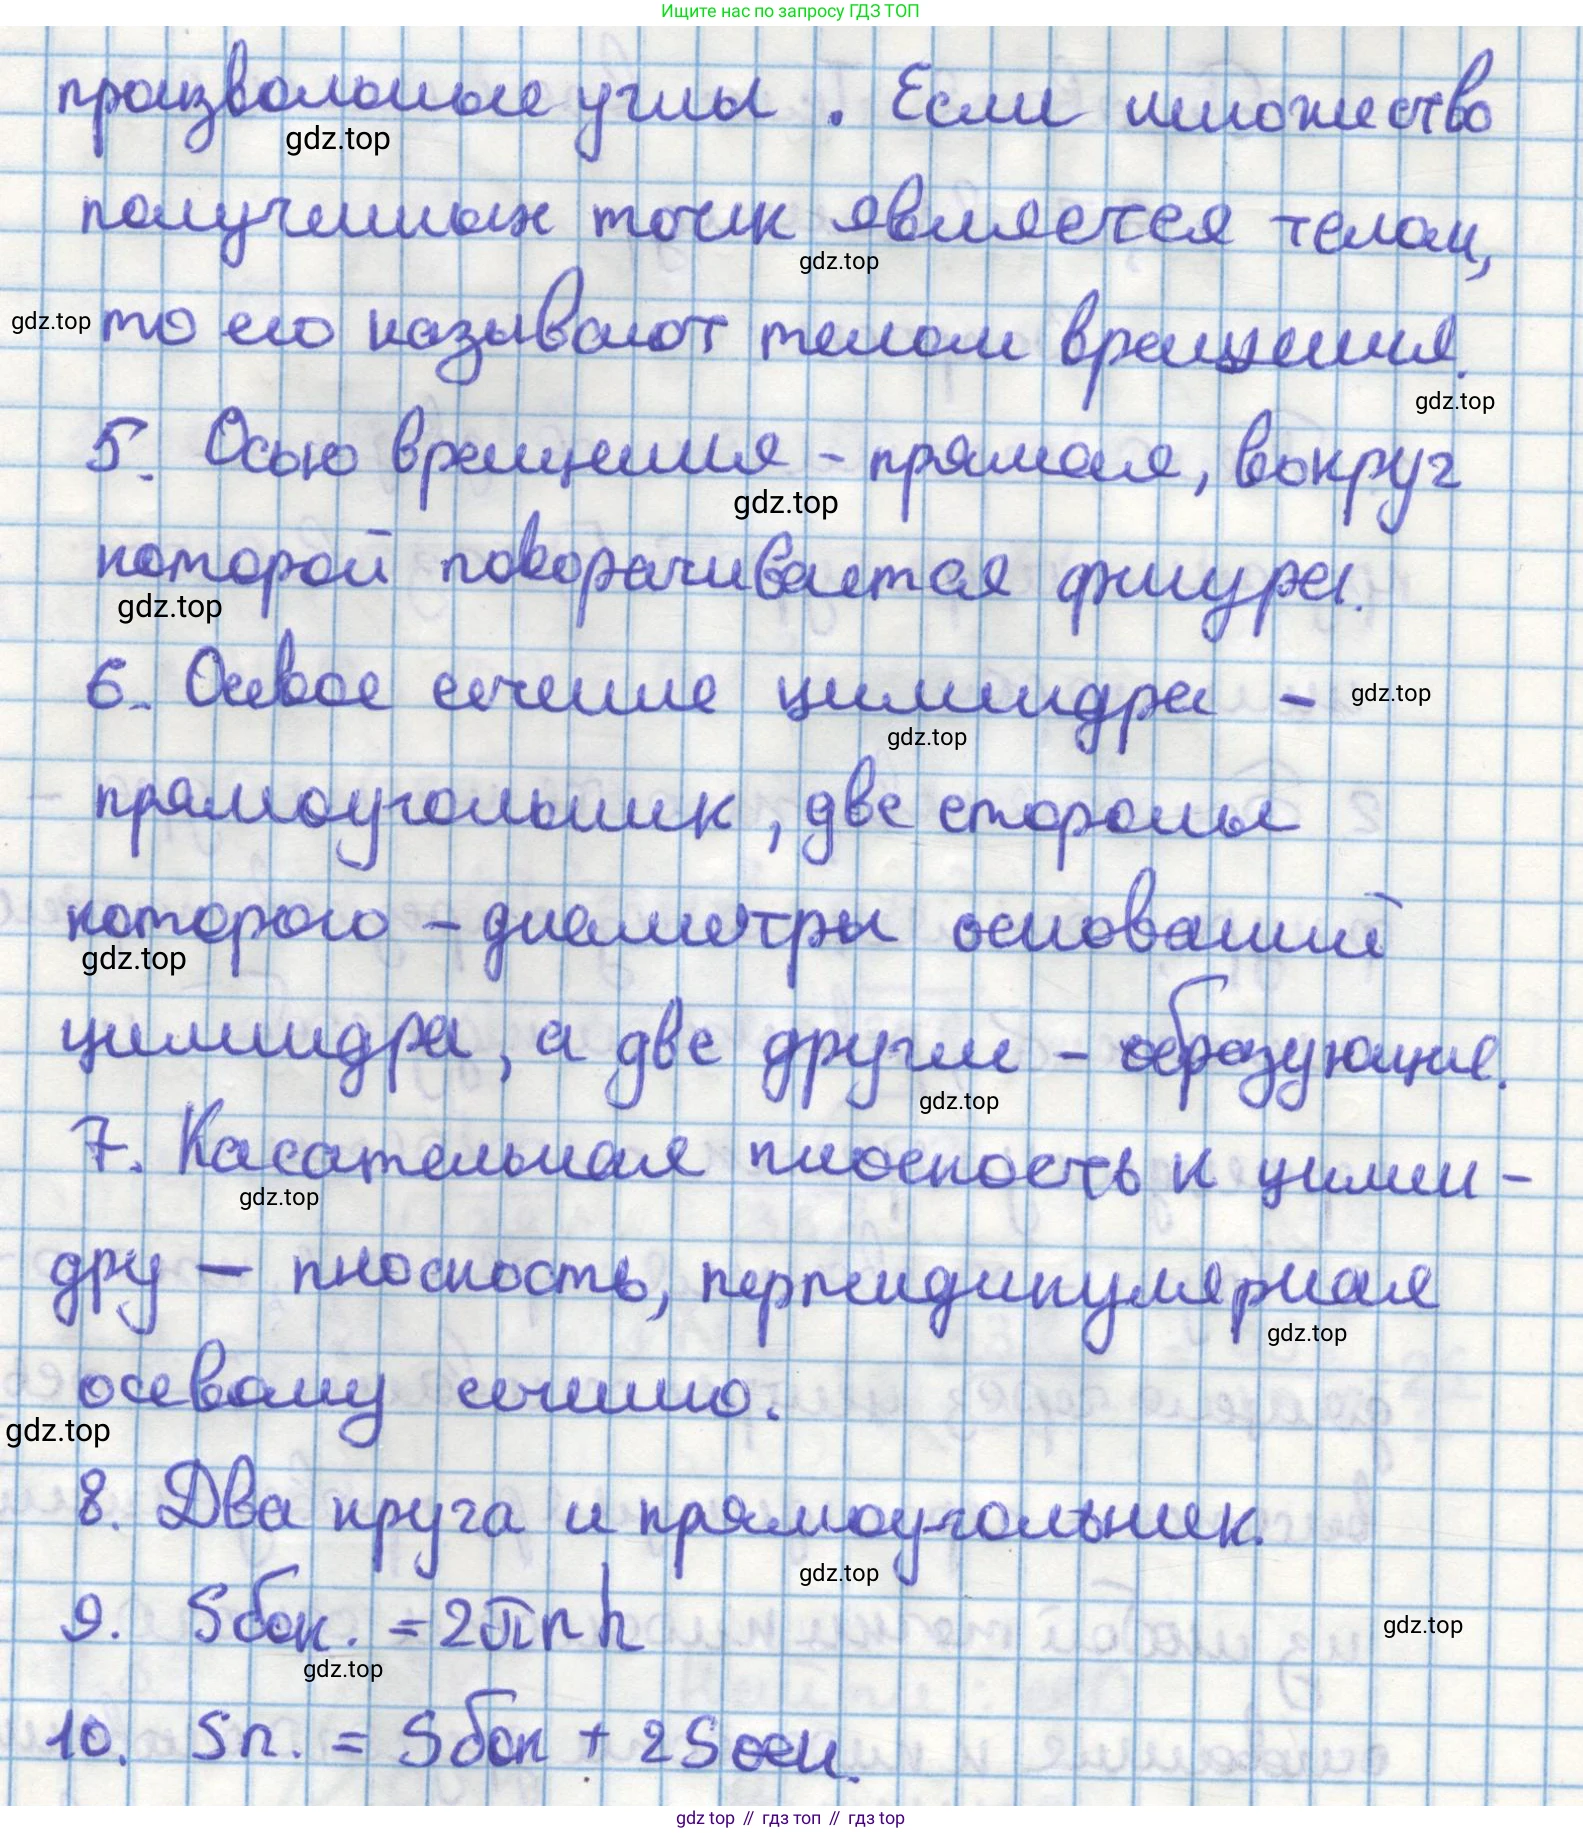 Ищите нас по запросу ГДЗ ТОП
произвольные углы. Если множество
gdz.top
полученных точек является телом,
gdz.top
gdz.top то его называют телом вращения.
gdz.top
5. Осью вращения - прямая, вокруг
gdz.top
которой поворачивается фигура.
gdz.top
6. Осевое сечение цилиндра - gdz.top
gdz.top
прямоугольник, две стороны
которого - диаметры оснований
gdz.top
цилиндра, а две другие - образующие.
gdz.top
7. Касательная плоскость к цилин-
gdz.top
дру - плоскость, перпендикулярная
gdz.top
осевому сечению.
gdz.top
8. Два круга и прямоугольник.
gdz.top
9. Sбок. = 2πrh
gdz.top
gdz.top
10. Sп. = Sбок + 2Sосн.
gdz top // гдз топ // гдз top